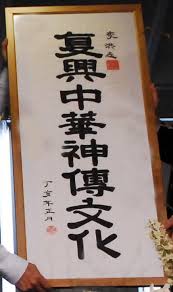 李洪志
復興中華神傳文化
丁亥年正月